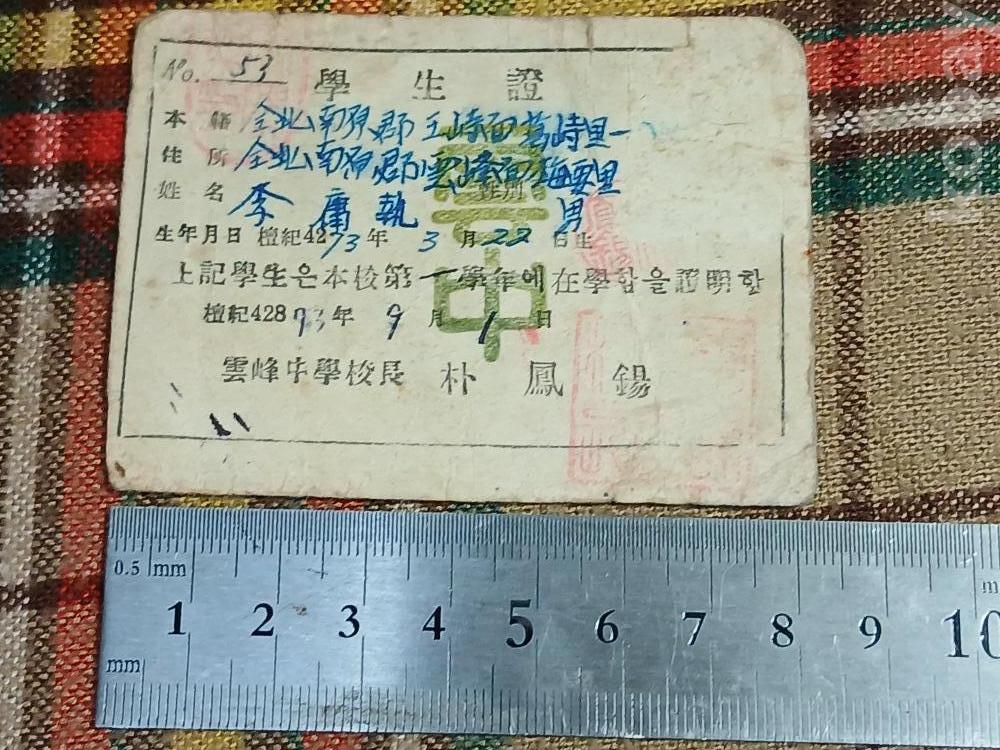 No. 53
學生證
本籍 全北南原郡王峙面 峙里一
住所 全北南原郡雲峰面梅要里
姓名 李庸執 性別 男
生年月日 檀紀4273年3月22日生
上記學生은本校第一學年에在學함을證明함
檀紀428 年9月1日
雲峰中學校長 朴鳳錫
雲中
0.5 mm
1 2 3 4 5 6 7 8 9 10
mm